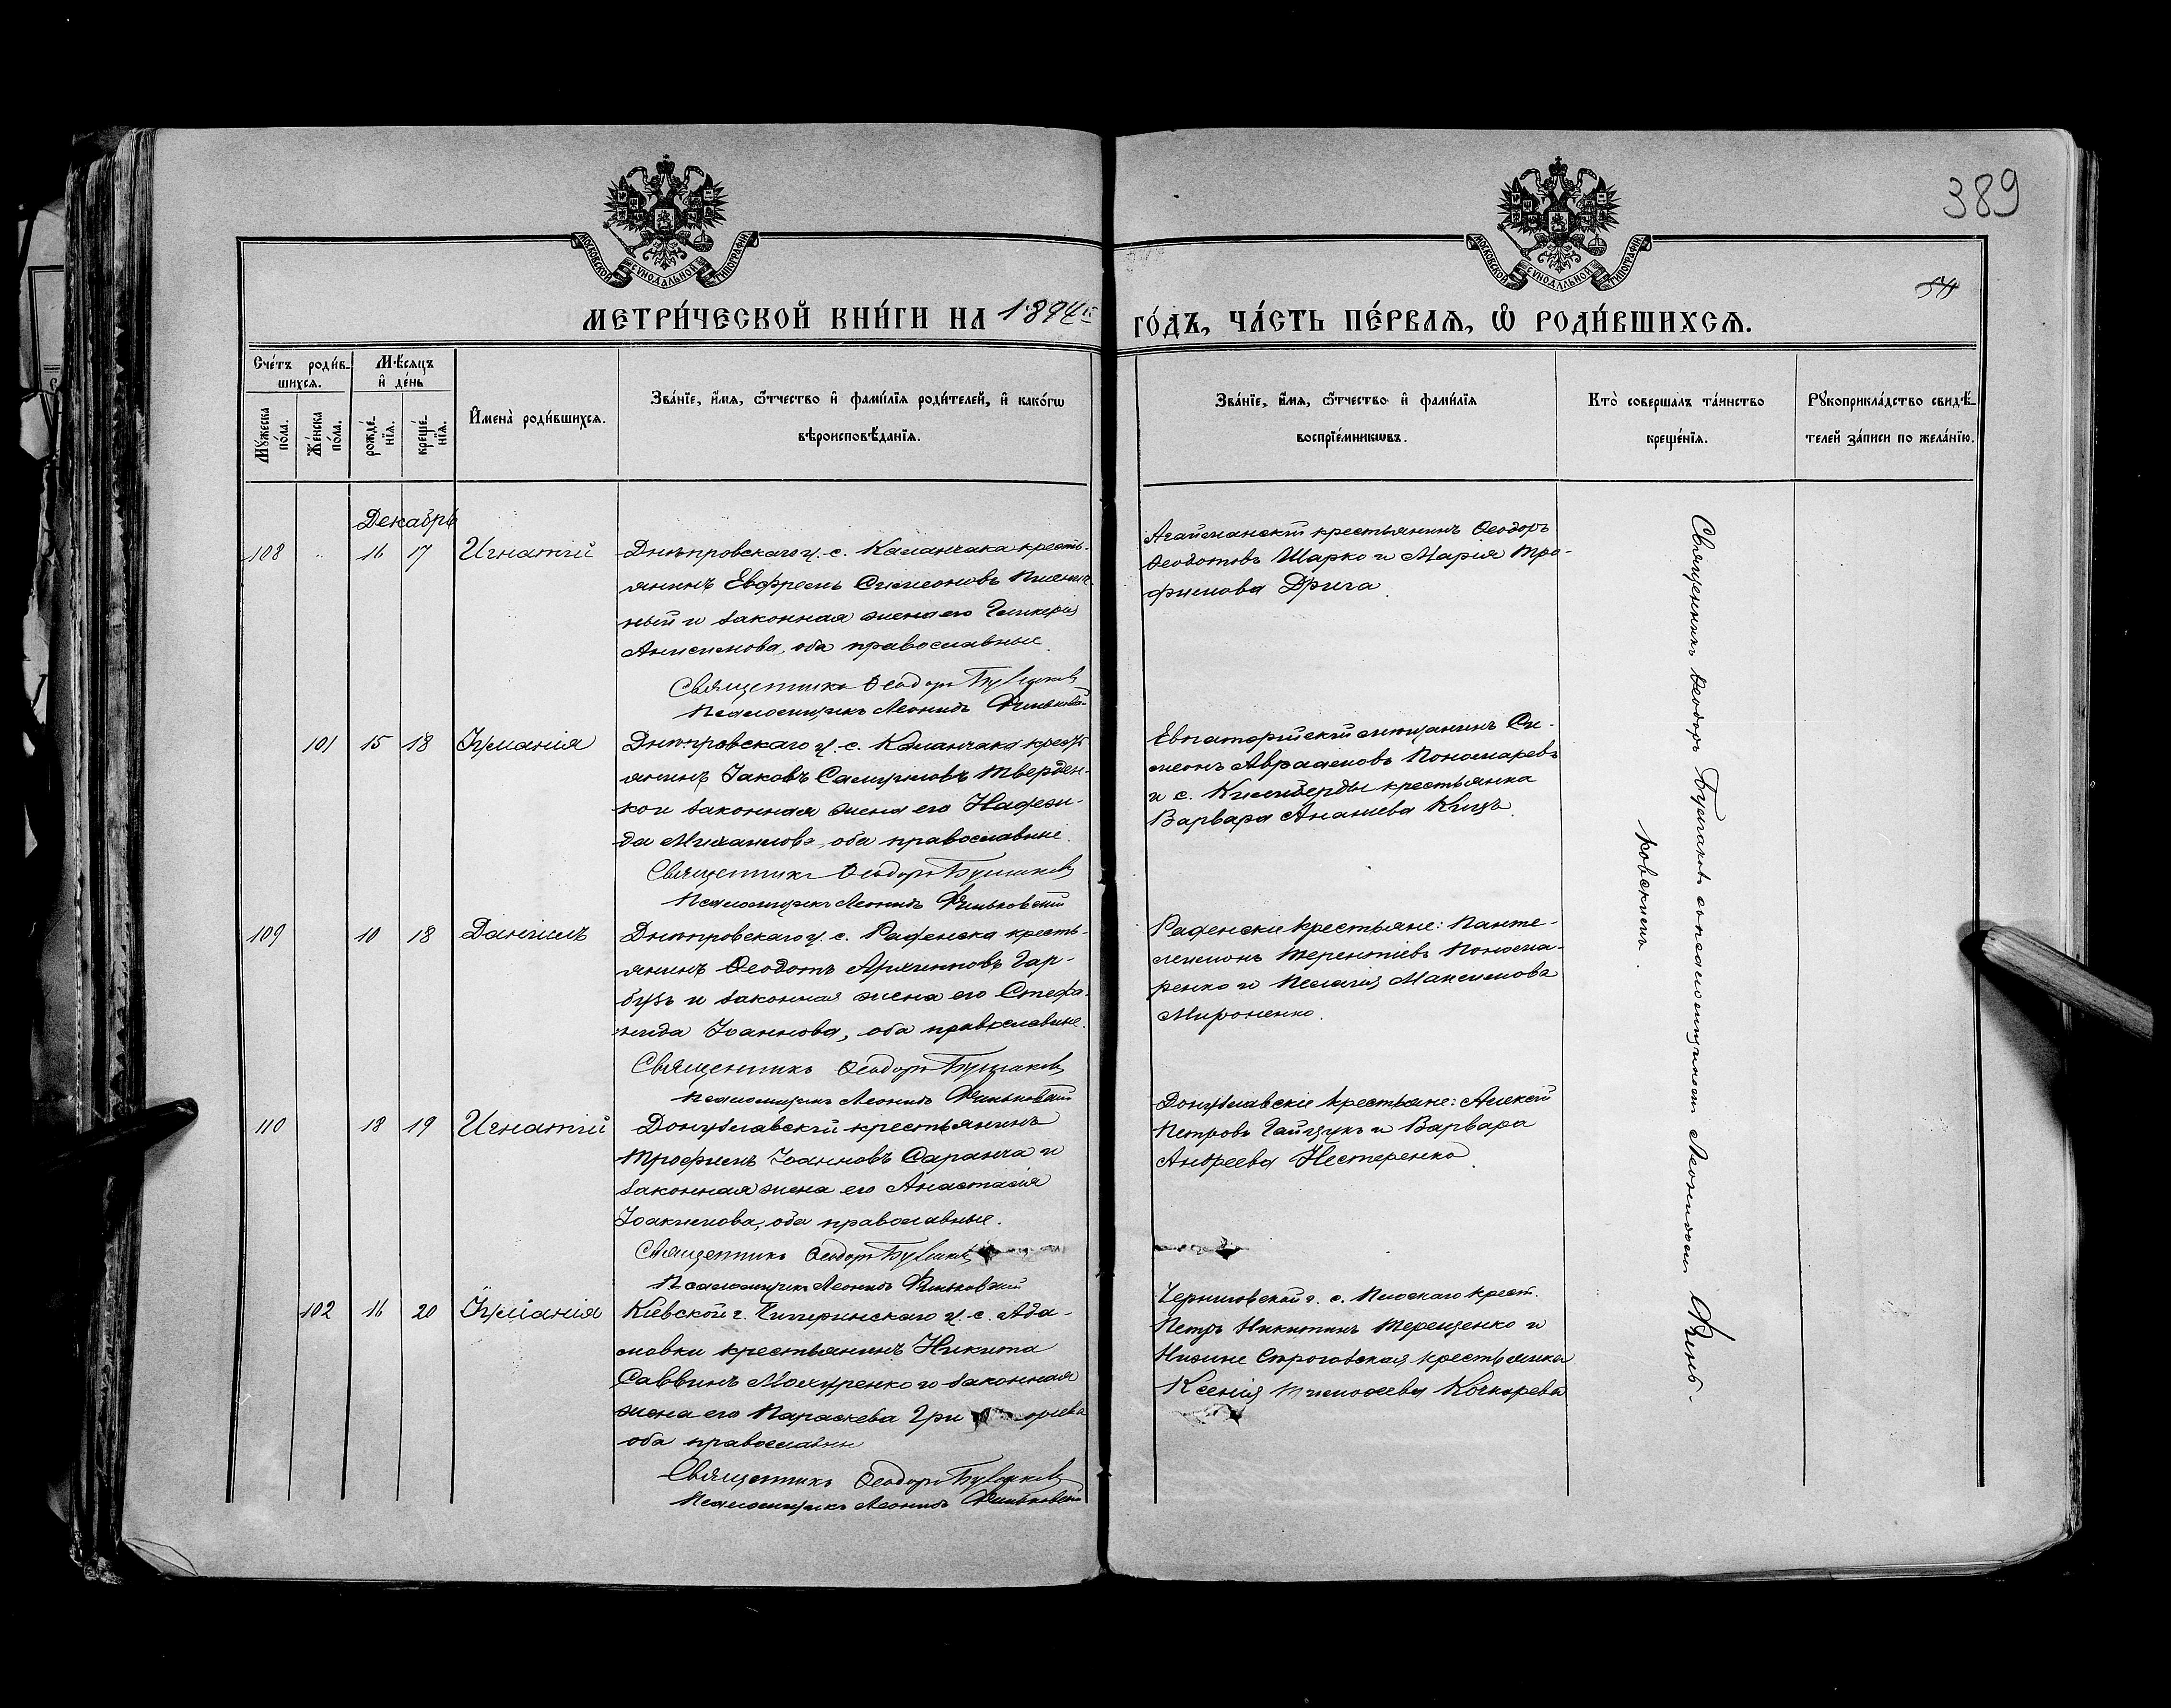 389
54
МОСКОВСКОЙ СѴНОДАЛЬНОЙ ТИПОГРАФІИ
МОСКОВСКОЙ СѴНОДАЛЬНОЙ ТИПОГРАФІИ
МЕТРИ́ЧЕСКОЙ КНИ́ГИ НА 1894й
ГО́ДЪ, ЧА́СТЬ ПЕ́РВАѦ, Ѡ҆ РОДИ́ВШИХСѦ.
Сче́тъ роди́в-
шихсѧ.
Мꙋжеска по́ла.
Же́нска по́ла.
Мѣ́сѧцъ
и҆ де́нь
рожде́-
нїѧ.
креще́-
нїѧ.
И҆мена̀ роди́вшихсѧ.
Зва́нїе, и҆́мѧ, ѻ҆́тчество и҆ фами́лїѧ роди́телей, и҆ како́гѡ
вѣроисповѣ́данїѧ.
Зва́нїе, и҆́мѧ, ѻ҆́тчество и҆ фами́лїѧ
воспрїе́мникѡвъ.
Кто̀ соверша́лъ та́инство
креще́нїѧ.
Рꙋкоприкла́дство свидѣ́-
телей за́писи по жела́нїю.
Декабрь
108 16 17 Игнатій
Днѣпровскаго у. с. Каланчака кресть-
янинъ Евфремъ Симеоновъ
ный и законная жена его Гликерія
Анисимова, оба православные.
Священникъ Ѳеодоръ
Псаломщикъ Леонидъ Финьковскій
Агайманскій крестьянинъ Ѳеодоръ
Ѳеодотовъ Шарко и Марія Тро-
фимова Дрига.
101 15 18 Іуліанія
Днѣпровскаго у. с. Каланчака кресть-
янинъ Іаковъ Самуиловъ Твердох-
ко и законная жена его Надеж-
да Михаилова, оба православные.
Священникъ Ѳеодоръ
Псаломщикъ Леонидъ Финьковскій
Евпаторійскій мѣщанинъ Си-
меонъ Авраамовъ Пономаревъ
и с. крестьянка
Варвара Ананіева Куцъ.
109 10 18 Даніилъ
Днѣпровскаго у. с. Раденска кресть-
янинъ Ѳеодотъ Архиповъ Гар-
бузъ и законная жена его Стефа-
нида Іоаннова, оба православные.
Священникъ Ѳеодоръ
Псаломщикъ Леонидъ Финьковскій
Раденскіе крестьяне: Панте-
леимонъ Терентіевъ Понома-
ренко и Пелагія Максимова
Мироненко.
110 18 19 Игнатій
Донузлавскій крестьянинъ
Трофимъ Іоанновъ Саранча и
законная жена его Анастасія
Іоакимова, оба православные.
Священникъ Ѳеодоръ
Псаломщикъ Леонидъ Финьковскій
Донузлавскіе крестьяне: Алексій
Петровъ Гайдукъ и Варвара
Андреева Нестеренко.
102 16 20 Іуліанія
Кіевской г. Чигиринскаго у. с. Ада-
мовки крестьянинъ Никита
Саввинъ и законная
жена его Параскева Григорьева
оба православные
Священникъ Ѳеодоръ
Псаломщикъ Леонидъ Финьковскій
Черниговской г. с. крест.
Петръ Никитинъ Терещенко и
крестьянка
Ксенія Тимоѳеева Кочкарева
Священникъ Ѳеодоръ съ псаломщикомъ Леонидомъ Финь-
ковскимъ.